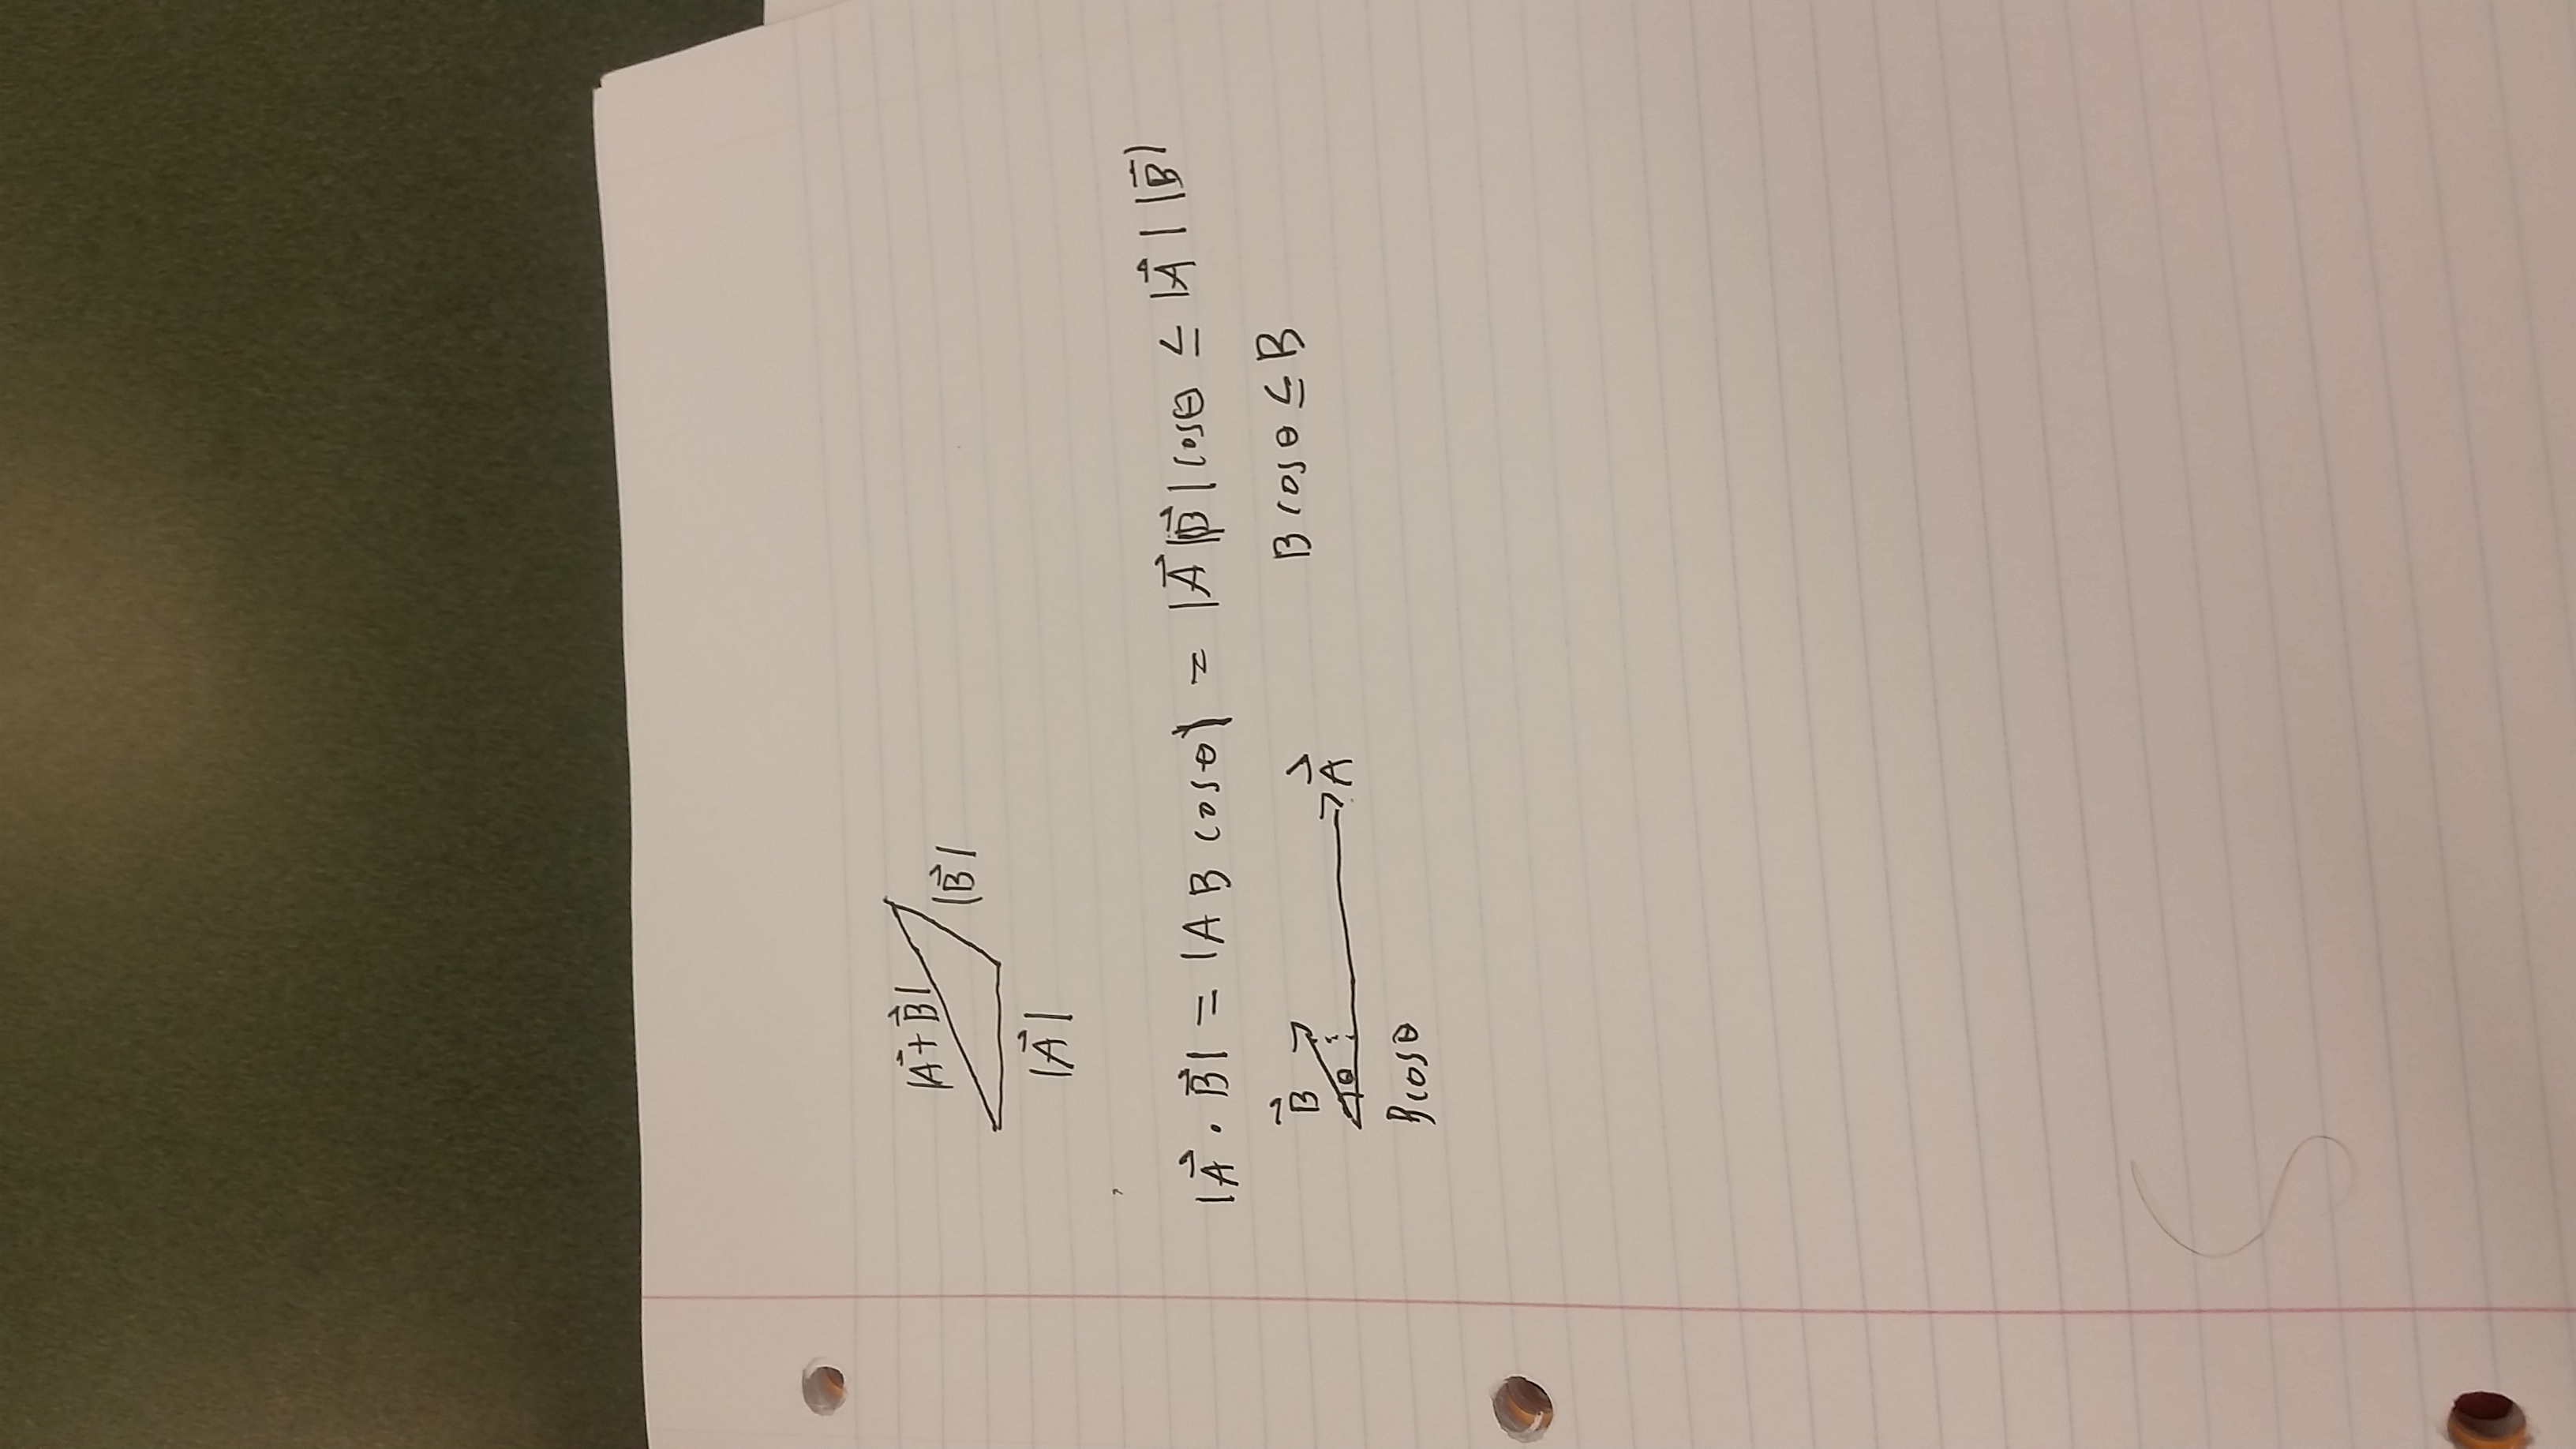 |A⃗+B⃗|
|B⃗|
|A⃗|
|A⃗ · B⃗| = |A B cosθ| = |A⃗||B⃗| cosθ ≤ |A⃗| |B⃗|
B⃗
B cosθ ≤ B
θ
A⃗
B cosθ